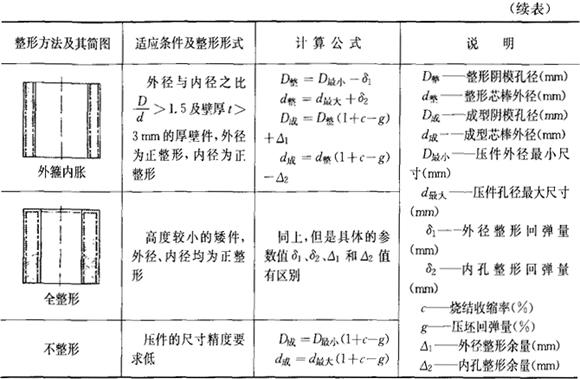 （续表）
整形方法及其简图
适应条件及整形形式
计算公式
说明
外箍内胀
外径与内径之比
D/d＞1.5及壁厚t＞
3mm的厚壁件，外径
为正整形，内径为正整
形
D整＝D最小－δ1
d整＝d最大＋δ2
D成＝D整(1＋c－g)
＋Δ1
d成＝d整(1＋c－g)
－Δ2
全整形
高度较小的矮件，
外径、内径均为正整
形
同上，但是具体的参
数值δ1、δ2、Δ1 和 Δ2 值
有区别
不整形
压件的尺寸精度要
求低
D成＝D最小(1＋c－g)
d成＝d最大(1＋c－g)
D整——整形阴模孔径(mm)
d整——整形芯棒外径(mm)
D成——成型阴模孔径(mm)
d成——成型芯棒外径(mm)
D最小——压件外径最小尺
寸(mm)
d最大——压件孔径最大尺寸
(mm)
δ1——外径整形回弹量
(mm)
δ2——内孔整形回弹量
(mm)
c——烧结收缩率(%)
g——压坯回弹量(%)
Δ1——外径整形余量(mm)
Δ2——内孔整形余量(mm)